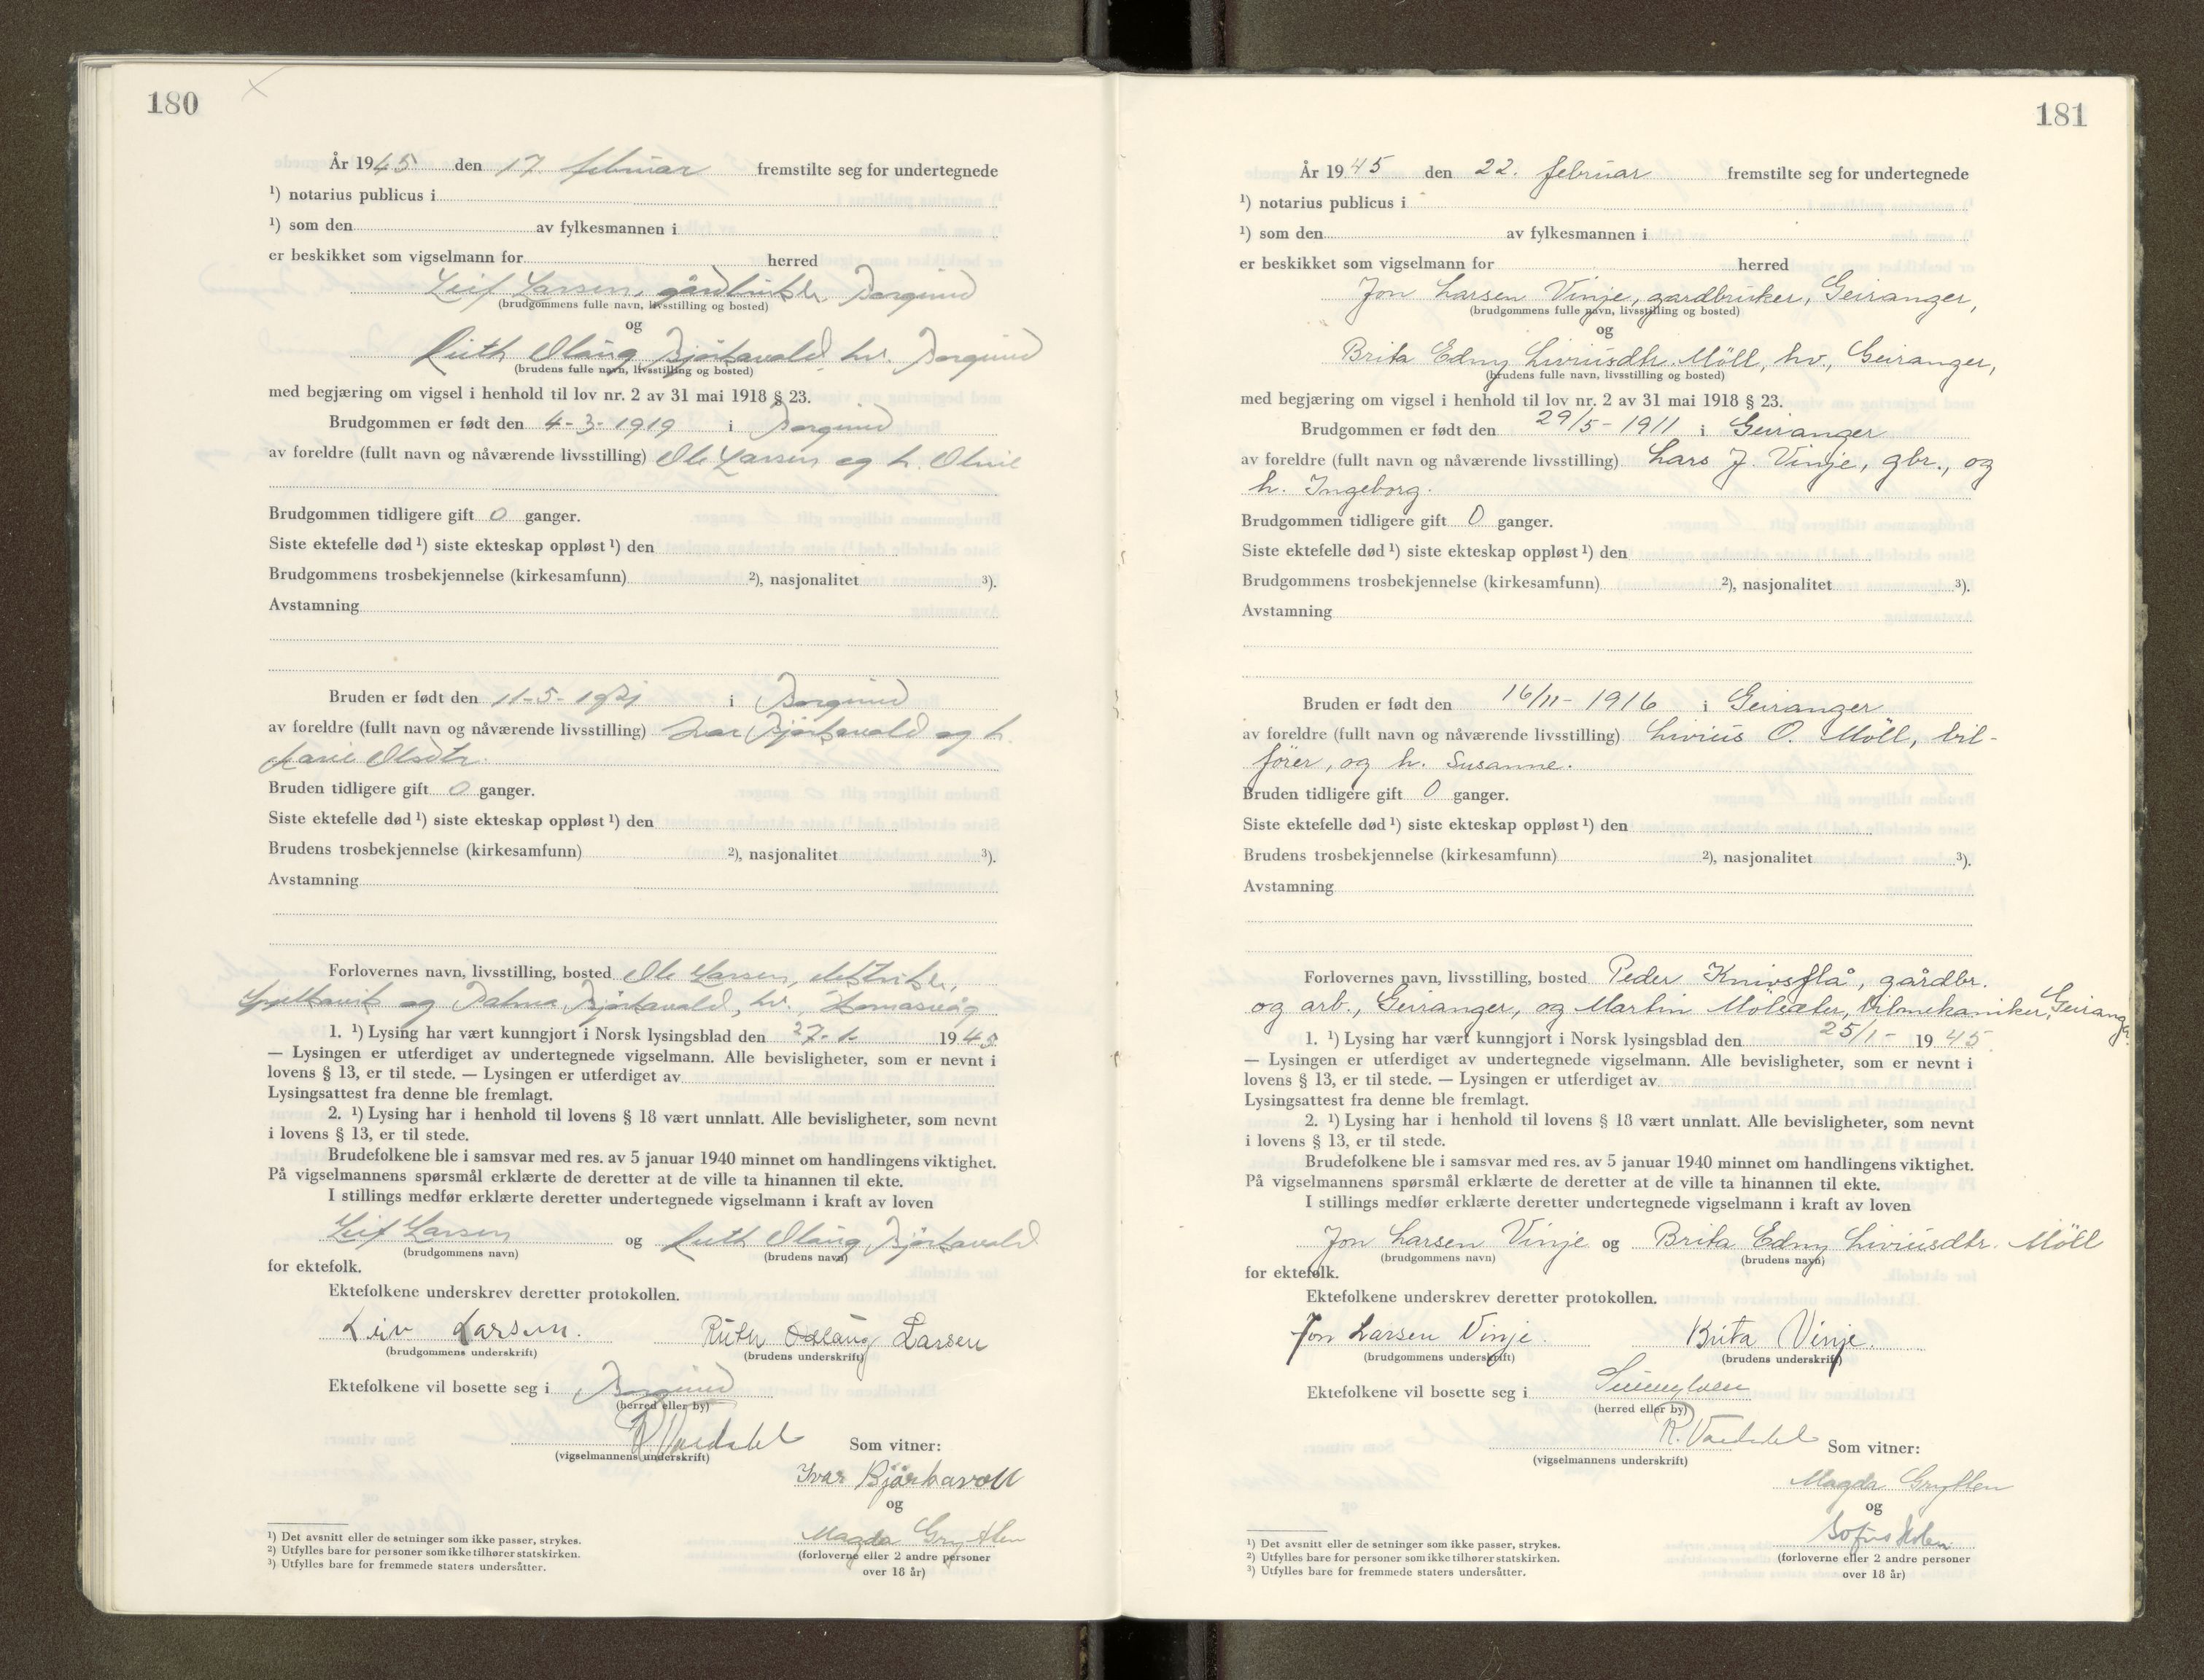 180
År 1945 den 17. februar fremstilte seg for undertegnede
¹) notarius publicus i
¹) som den av fylkesmannen i
er beskikket som vigselmann for herred
Leif Larsen, gårdbruker, Borgund
(brudgommens fulle navn, livsstilling og bosted)
og
Ruth Olaug Bjørkavald, hv. Borgund
(brudens fulle navn, livsstilling og bosted)
med begjæring om vigsel i henhold til lov nr. 2 av 31 mai 1918 § 23.
Brudgommen er født den 4-3-1919 i Borgund
av foreldre (fullt navn og nåværende livsstilling) Ole Larsen og h.
Brudgommen tidligere gift 0 ganger.
Siste ektefelle død ¹) siste ekteskap oppløst ¹) den
Brudgommens trosbekjennelse (kirkesamfunn) ²), nasjonalitet ³).
Avstamning
Bruden er født den 11-5-1921 i Borgund
av foreldre (fullt navn og nåværende livsstilling) Ivar Bjørkavald og h.
Marie Olsdtr.
Bruden tidligere gift 0 ganger.
Siste ektefelle død ¹) siste ekteskap oppløst ¹) den
Brudens trosbekjennelse (kirkesamfunn) ²), nasjonalitet ³).
Avstamning
Forlovernes navn, livsstilling, bosted Ole Larsen,
Spjelkavik og Palma Bjørkavald, hv.,
1. ¹) Lysing har vært kunngjort i Norsk lysingsblad den 27-1- 1945
— Lysingen er utferdiget av undertegnede vigselmann. Alle bevisligheter, som er nevnt i
lovens § 13, er til stede. — Lysingen er utferdiget av
Lysingsattest fra denne ble fremlagt.
2. ¹) Lysing har i henhold til lovens § 18 vært unnlatt. Alle bevisligheter, som nevnt
i lovens § 13, er til stede.
Brudefolkene ble i samsvar med res. av 5 januar 1940 minnet om handlingens viktighet.
På vigselmannens spørsmål erklærte de deretter at de ville ta hinannen til ekte.
I stillings medfør erklærte deretter undertegnede vigselmann i kraft av loven
Leif Larsen og Ruth Olaug Bjørkavald
(brudgommens navn) (brudens navn)
for ektefolk.
Ektefolkene underskrev deretter protokollen.
Leiv Larsen. Ruth Oddlaug Larsen
(brudgommens underskrift) (brudens underskrift)
Ektefolkene vil bosette seg i Borgund
(herred eller by)
(vigselmannens underskrift) Som vitner:
Ivar Bjørkavoll
og
Magda Grytten
(forloverne eller 2 andre personer
over 18 år)
¹) Det avsnitt eller de setninger som ikke passer, strykes.
²) Utfylles bare for personer som ikke tilhører statskirken.
³) Utfylles bare for fremmede staters undersåtter.
181
År 1945 den 22. februar fremstilte seg for undertegnede
¹) notarius publicus i
¹) som den av fylkesmannen i
er beskikket som vigselmann for herred
Jon Larsen Vinje, gardbruker, Geiranger,
(brudgommens fulle navn, livsstilling og bosted)
og
Brita Edny Liviusdtr. Möll, hv., Geiranger,
(brudens fulle navn, livsstilling og bosted)
med begjæring om vigsel i henhold til lov nr. 2 av 31 mai 1918 § 23.
Brudgommen er født den 29/5-1911 i Geiranger
av foreldre (fullt navn og nåværende livsstilling) Lars J. Vinje, gbr., og
h. Ingeborg.
Brudgommen tidligere gift 0 ganger.
Siste ektefelle død ¹) siste ekteskap oppløst ¹) den
Brudgommens trosbekjennelse (kirkesamfunn) ²), nasjonalitet ³).
Avstamning
Bruden er født den 16/11-1916 i Geiranger
av foreldre (fullt navn og nåværende livsstilling) Livius O. Möll, bil-
förer, og h. Susanne.
Bruden tidligere gift 0 ganger.
Siste ektefelle død ¹) siste ekteskap oppløst ¹) den
Brudens trosbekjennelse (kirkesamfunn) ²), nasjonalitet ³).
Avstamning
Forlovernes navn, livsstilling, bosted Peder Knivsflå, gårdbr.
og arb., Geiranger, og Martin Mölsæter, bilmekaniker, Geiranger
1. ¹) Lysing har vært kunngjort i Norsk lysingsblad den 25/1- 1945.
— Lysingen er utferdiget av undertegnede vigselmann. Alle bevisligheter, som er nevnt i
lovens § 13, er til stede. — Lysingen er utferdiget av
Lysingsattest fra denne ble fremlagt.
2. ¹) Lysing har i henhold til lovens § 18 vært unnlatt. Alle bevisligheter, som nevnt
i lovens § 13, er til stede.
Brudefolkene ble i samsvar med res. av 5 januar 1940 minnet om handlingens viktighet.
På vigselmannens spørsmål erklærte de deretter at de ville ta hinannen til ekte.
I stillings medfør erklærte deretter undertegnede vigselmann i kraft av loven
Jon Larsen Vinje og Brita Edny Liviusdtr. Möll
(brudgommens navn) (brudens navn)
for ektefolk.
Ektefolkene underskrev deretter protokollen.
Jon Larsen Vinje. Brita Vinje.
(brudgommens underskrift) (brudens underskrift)
Ektefolkene vil bosette seg i Sunnylven
(herred eller by)
(vigselmannens underskrift) Som vitner:
Magda Grytten
og
Sofus Holen
(forloverne eller 2 andre personer
over 18 år)
¹) Det avsnitt eller de setninger som ikke passer, strykes.
²) Utfylles bare for personer som ikke tilhører statskirken.
³) Utfylles bare for fremmede staters undersåtter.